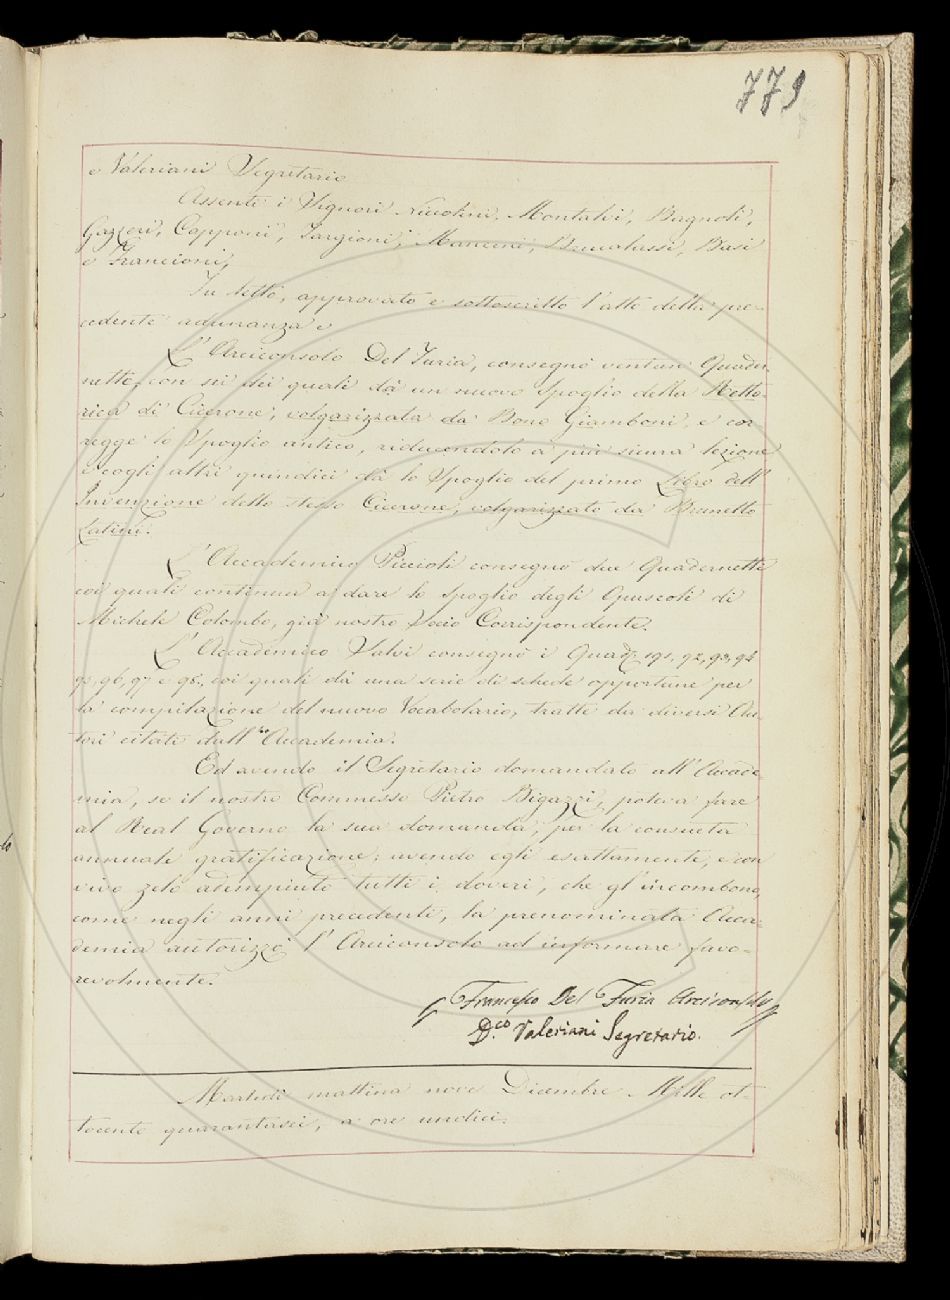 779
e Valeriani Segretario
Assenti i Signori Niccolini, Montalvi, Bagnoli,
Gazzeri, Capponi, Targioni, Mancini, Brucalassi, Basi
e Francioni,
Fu letto, approvato e sottoscritto l'atto della pre-
cedente adunanza e
L'Arciconsolo Del Furia, consegnò ventun Quader-
netti, con sei dei quali dà un nuovo Spoglio della Retto-
rica di Cicerone, volgarizzata da Bono Giamboni, e cor
regge lo Spoglio antico, riducendolo a più sicura lezione
e cogli altri quindici dà lo Spoglio del primo Libro dell'
Invenzione dello stesso Cicerone, volgarizzato da Brunetto
Latini.
L'Accademico Piccioli consegnò due Quadernetti
coi quali continua a dare lo spoglio degli Opuscoli di
Michele Colombo, già nostro Socio Corrispondente.
L'Accademico Salvi consegnò i Quad. 191, 92, 93, 94
95, 96, 97 e 98, coi quali dà una serie di schede opportune per
la compilazione del nuovo Vocabolario, tratte da diversi Au-
tori citati dall'Accademia.
Ed avendo il Segretario domandato all'Accade-
mia, se il nostro Commesso Pietro Bigazzi, poteva fare
al Real Governo la sua domanda, per la consueta
annuale gratificazione; avendo egli esattamente, e con
vivo zelo adempiuto tutti i doveri, che gl'incombono,
come negli anni precedenti, la prenominata Acca-
demia autorizzò l'Arciconsolo ad informare favo-
revolmente.
Francesco Del Furia Arciconsolo
D.co Valeriani Segretario.
Martedì mattina nove Dicembre Mille ot-
tocento quarantasei, a ore undici.